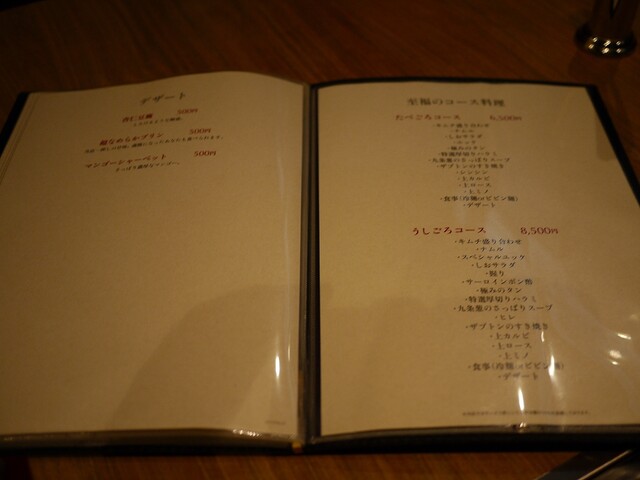 デザート
杏仁豆腐 500円
超なめらかプリン 500円
マンゴーシャーベット 500円
至福のコース料理
たべごろコース 6,500円
・キムチ盛り合わせ
・ナムル
・しおサラダ
・ユッケ
・極みのタン
・特選厚切りハラミ
・九条葱のさっぱりスープ
・ザブトンのすき焼き
・シンシン
・上カルビ
・上ロース
・上ミノ
・食事(冷麺orビビン麺)
・デザート
うしごろコース 8,500円
・キムチ盛り合わせ
・ナムル
・スペシャルユッケ
・しおサラダ
・握り
・サーロインポン酢
・極みのタン
・特選厚切りハラミ
・九条葱のさっぱりスープ
・ヒレ
・ザブトンのすき焼き
・上カルビ
・上ロース
・上ミノ
・食事(冷麺orビビン麺)
・デザート